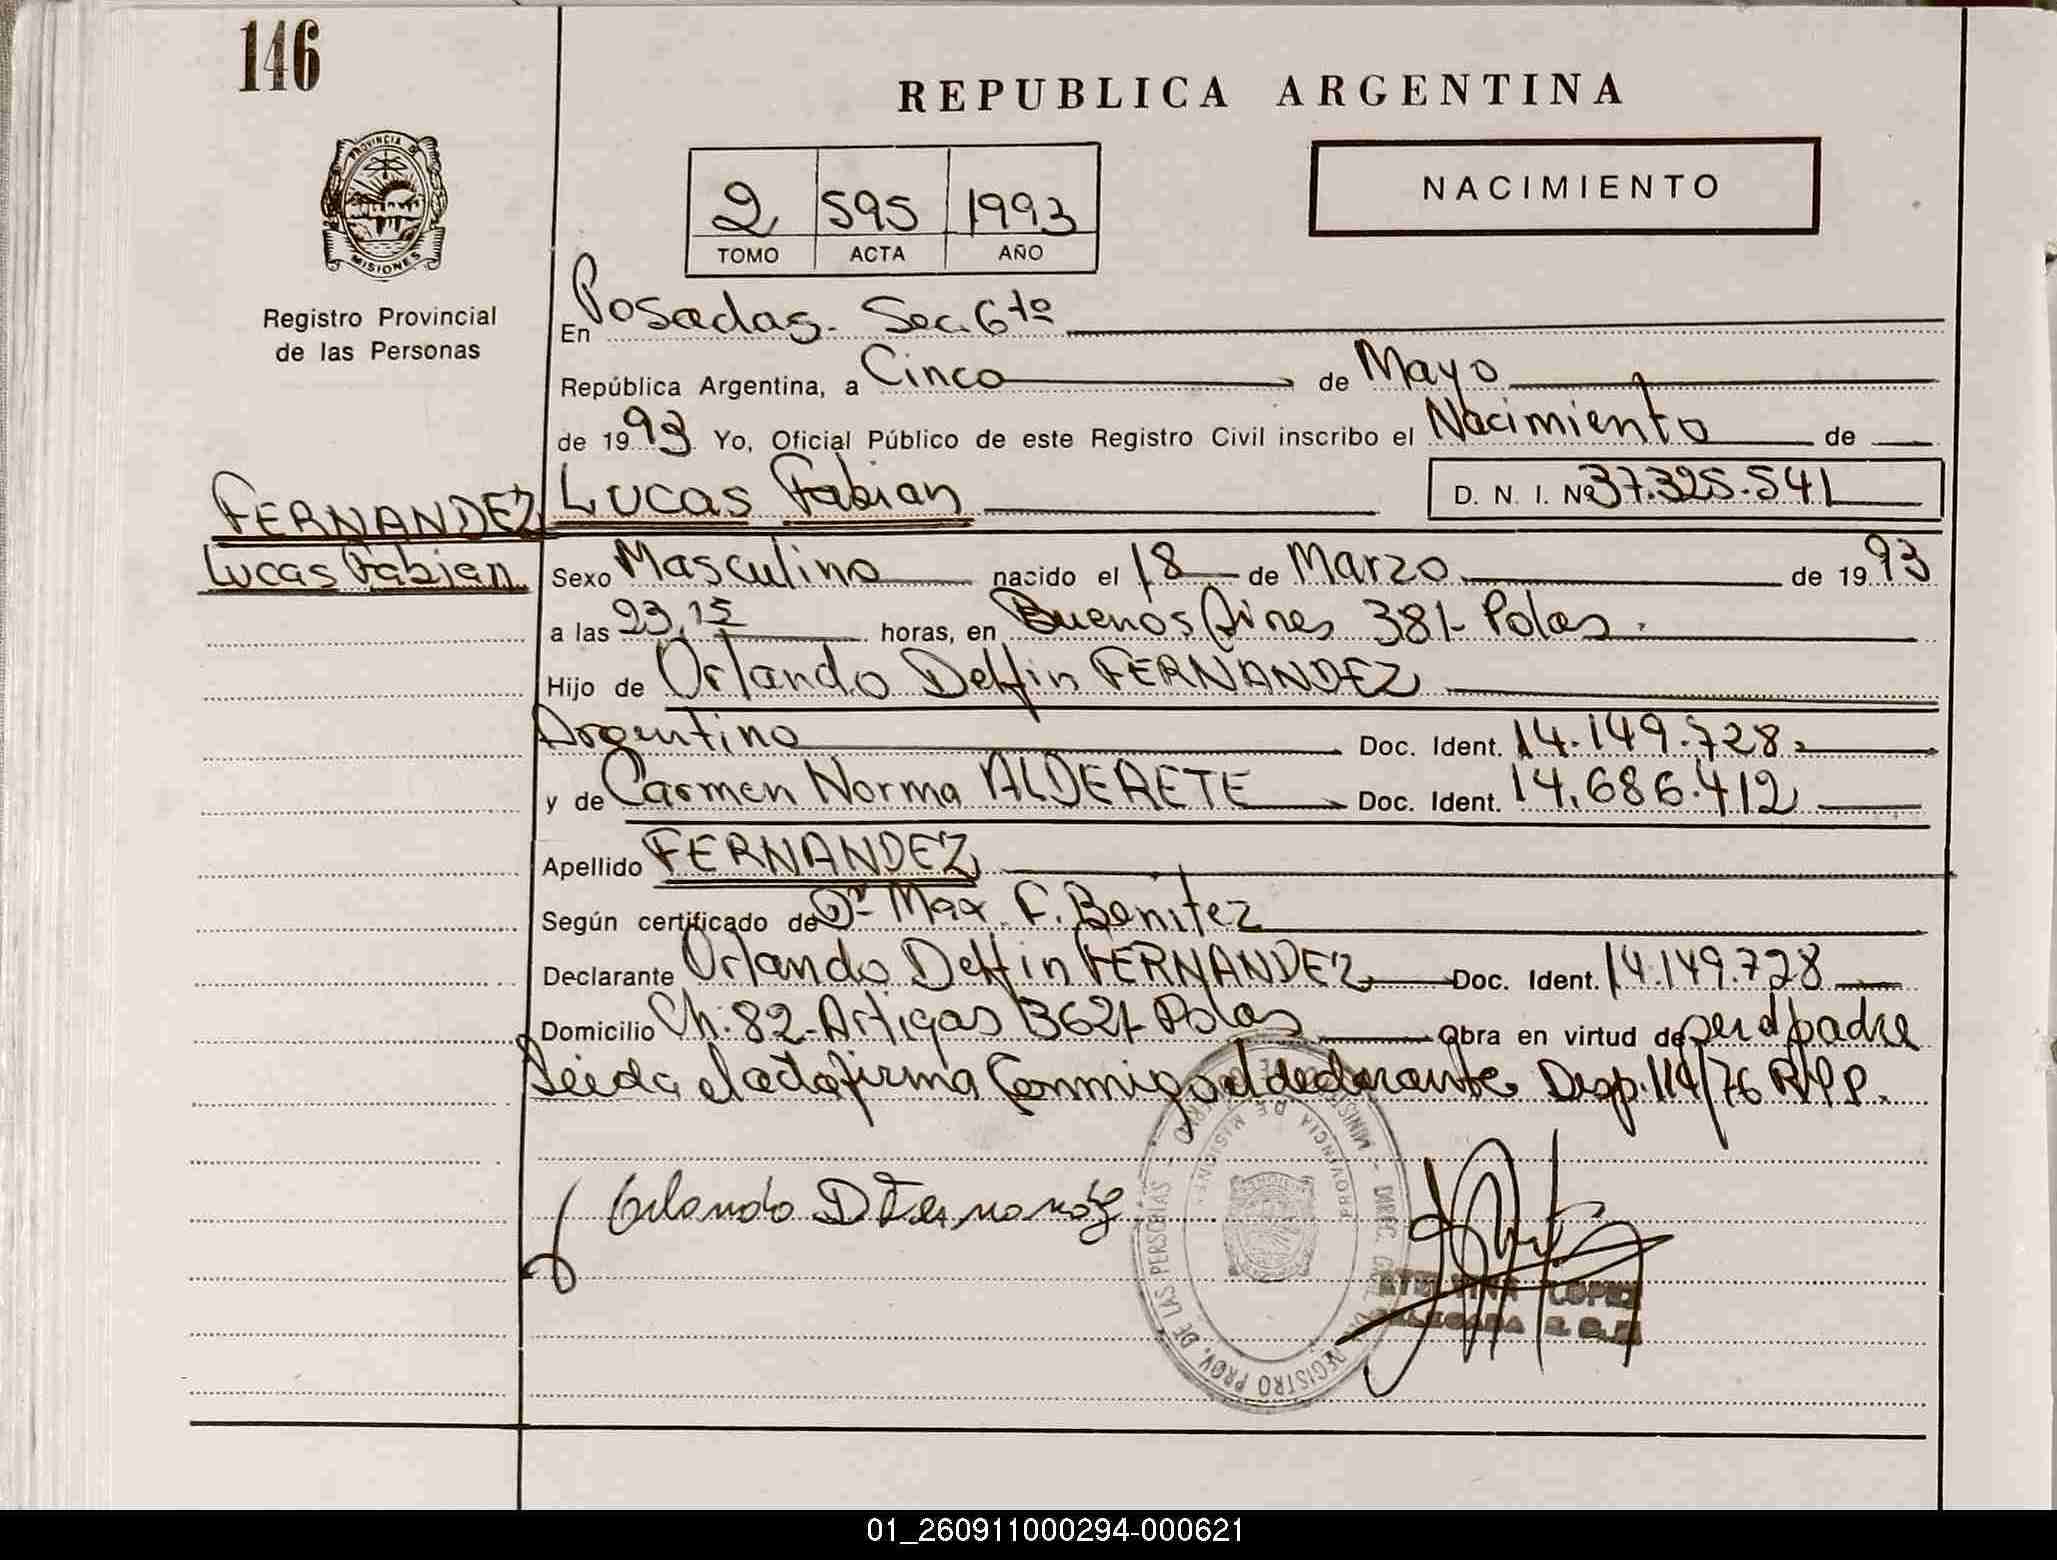 146
REPUBLICA ARGENTINA
PROVINCIA DE
MISIONES
2 595 1993
TOMO ACTA AÑO
NACIMIENTO
Registro Provincial
de las Personas
En Posadas. Sec. 6ta
República Argentina, a Cinco de Mayo
de 1993 Yo, Oficial Público de este Registro Civil inscribo el Nacimiento de
FERNANDEZ Lucas Fabian D. N. I. Nº 37.325.541
Lucas Fabian Sexo Masculino nacido el 18 de Marzo de 1993
a las 23,15 horas, en Buenos Aires 381- Pdas.
Hijo de Orlando Delfin FERNANDEZ
Argentino Doc. Ident. 14.149.728
y de Carmen Norma ALDERETE Doc. Ident. 14.686.412
Apellido FERNANDEZ
Según certificado de Dr Max F. Benitez
Declarante Orlando Delfin FERNANDEZ Doc. Ident. 14.149.728
Domicilio Ch: 82- Artigas 3621- Pdas Obra en virtud de ser el padre
Leida el acta firma Conmigo el declarante Disp. 114/76 R.P.P.
Orlando D Fernandez
REGISTRO PROV. DE LAS PERSONAS
PROVINCIA DE MISIONES
LOPEZ
01_260911000294-000621